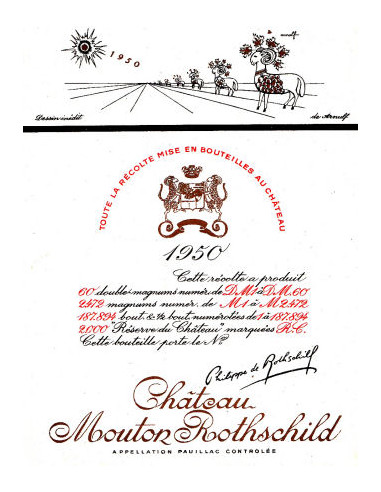 arnulf
1950
Dessin inédit
de Arnulf
TOUTE LA RÉCOLTE MISE EN BOUTEILLES AU CHÂTEAU
1950
Cette récolte a produit
60 double magnums numér. de D.M.1 à D.M.60
2472 magnums numér. de M1 à M2472
187.894 bout. & ½ bout. numérotées de 1 à 187.894
2.000 "Réserve du Château" marquées R.C.
Cette bouteille porte le No
Philippe de Rothschild
Château
Mouton Rothschild
APPELLATION PAUILLAC CONTROLÉE